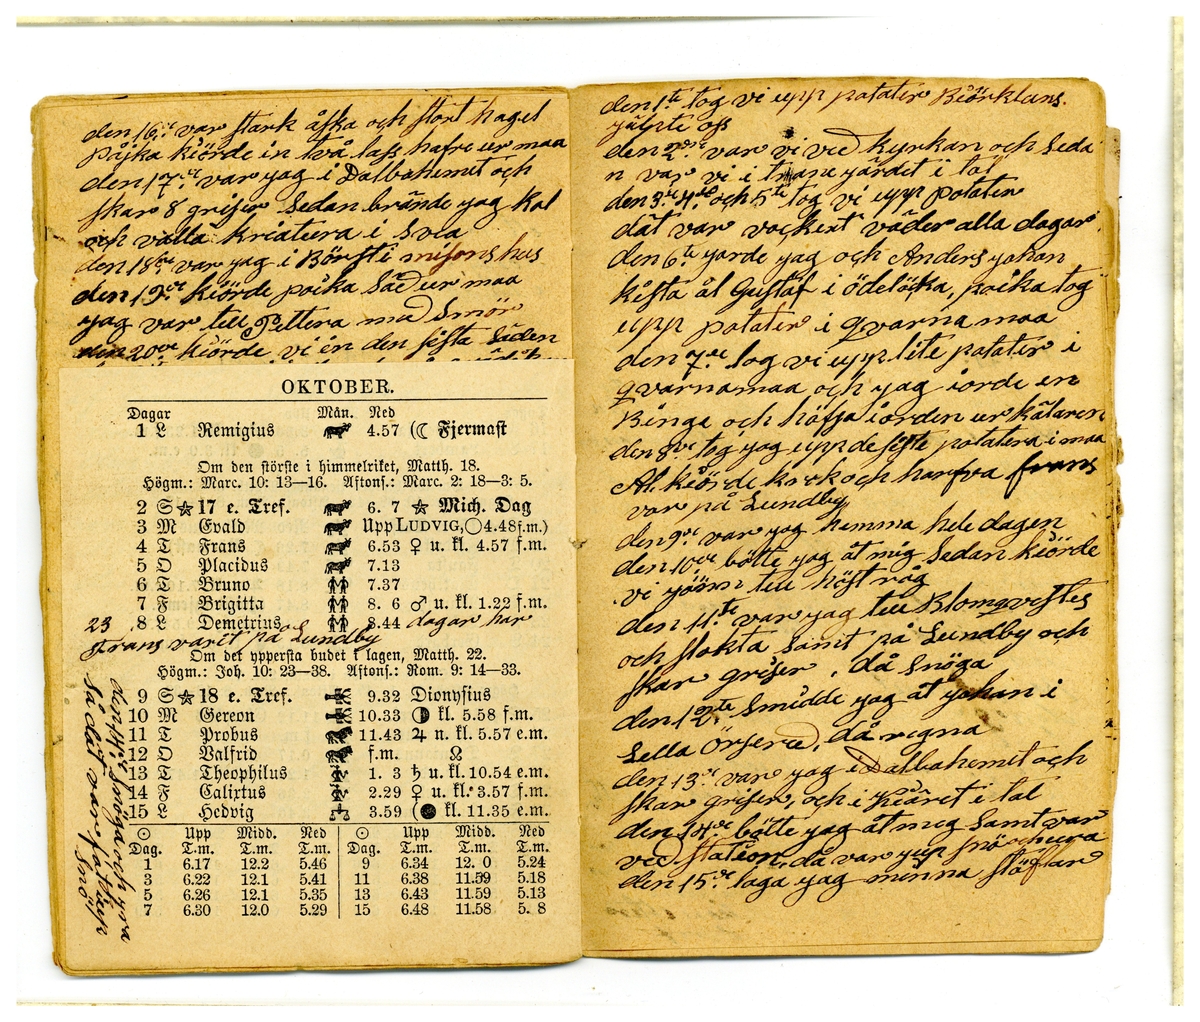 den 16de var stark åska och stort hagel
påjka kiörde in två lass hafre ur maa
den 17de var yag i Dalbahemit och
skar 8 griser Sedan brände yag kol
och valla kriatura i Svia
den 18de var yag i Börsti misons hus
den 19de kiörde poika Säd ur maa
yag var till Pettera med Smör
den 20de kiörde vi in den sista Säden
OKTOBER.
Dagar Mån. Ned
1 L Remigius 4.57 (☾ Fjermast
Om den störste i himmelriket, Matth. 18.
Högm.: Marc. 10: 13—16. Aftons.: Marc. 2: 18—3: 5.
2 S ☆ 17 e. Tref. 6. 7 ☆ Mich. Dag
3 M Evald Upp LUDVIG, ○ 4.48 f.m.)
4 T Frans 6.53 ♀ u. kl. 4.57 f.m.
5 O Placidus 7.13
6 T Bruno 7.37
7 F Brigitta 8. 6 ♂ u. kl. 1.22 f.m.
8 L Demetrius 8.44
23 dagar har
Frans varit på Lundby
Om det yppersta budet i lagen, Matth. 22.
Högm.: Joh. 10: 23—38. Aftons.: Rom. 9: 14—33.
9 S ☆ 18 e. Tref. 9.32 Dionysius
10 M Gereon 10.33 ◑ kl. 5.58 f.m.
11 T Probus 11.43 ♃ n. kl. 5.57 e.m.
12 O Valfrid f.m. ☊
13 T Theophilus 1. 3 ♄ u. kl. 10.54 e.m.
14 F Calixtus 2.29 ♀ u. kl. 3.57 f.m.
15 L Hedvig 3.59 (● kl. 11.35 e.m.
☉ Upp Midd. Ned ☉ Upp Midd. Ned
Dag. T.m. T.m. T.m. Dag. T.m. T.m. T.m.
1 6.17 12.2 5.46 9 6.34 12. 0 5.24
3 6.22 12.1 5.41 11 6.38 11.59 5.18
5 6.26 12.1 5.35 13 6.43 11.59 5.13
7 6.30 12.0 5.29 15 6.48 11.58 5. 8
snöga och yora
så dät var
Snö
den 1sta tog vi upp potater Biörkluns
yälpte oss
den 2dre var vi ved kyrkan och Seda
n var vi i yärdet i tal
den 3de 4de och 5te tog vi upp potater
dät var vackert väder alla dagar
den 6te yorde yag och Anders yohan
kista åt Gustaf i ödelöcka, poika tog
upp potater i qvarna maa
den 7de tog vi upp lite potater i
qvarnamaa och yag iorde en
Binge och höfsa iorden ur kälaren
den 8de tog yag upp de siste potatera i maa
Al. kiörde krok och harfva frans
var på Lundby
den 9de var yag hemma hele dagen
den 10de bötte yag åt mig Sedan kiörde
vi yörn till höst råg
den 11te var yag till Blomqvistes
och slakta Samt på Lundby och
skar griser, då Snöga
den 12te Smidde yag åt yohan i
Sella, då regna
den 13de var yag i Dalbahemit och
skar griser, och i Kiäret i tal
den 14de bötte yag åt mig Samt var
ved station, då var yup snö
den 15de laga yag minna stöflar